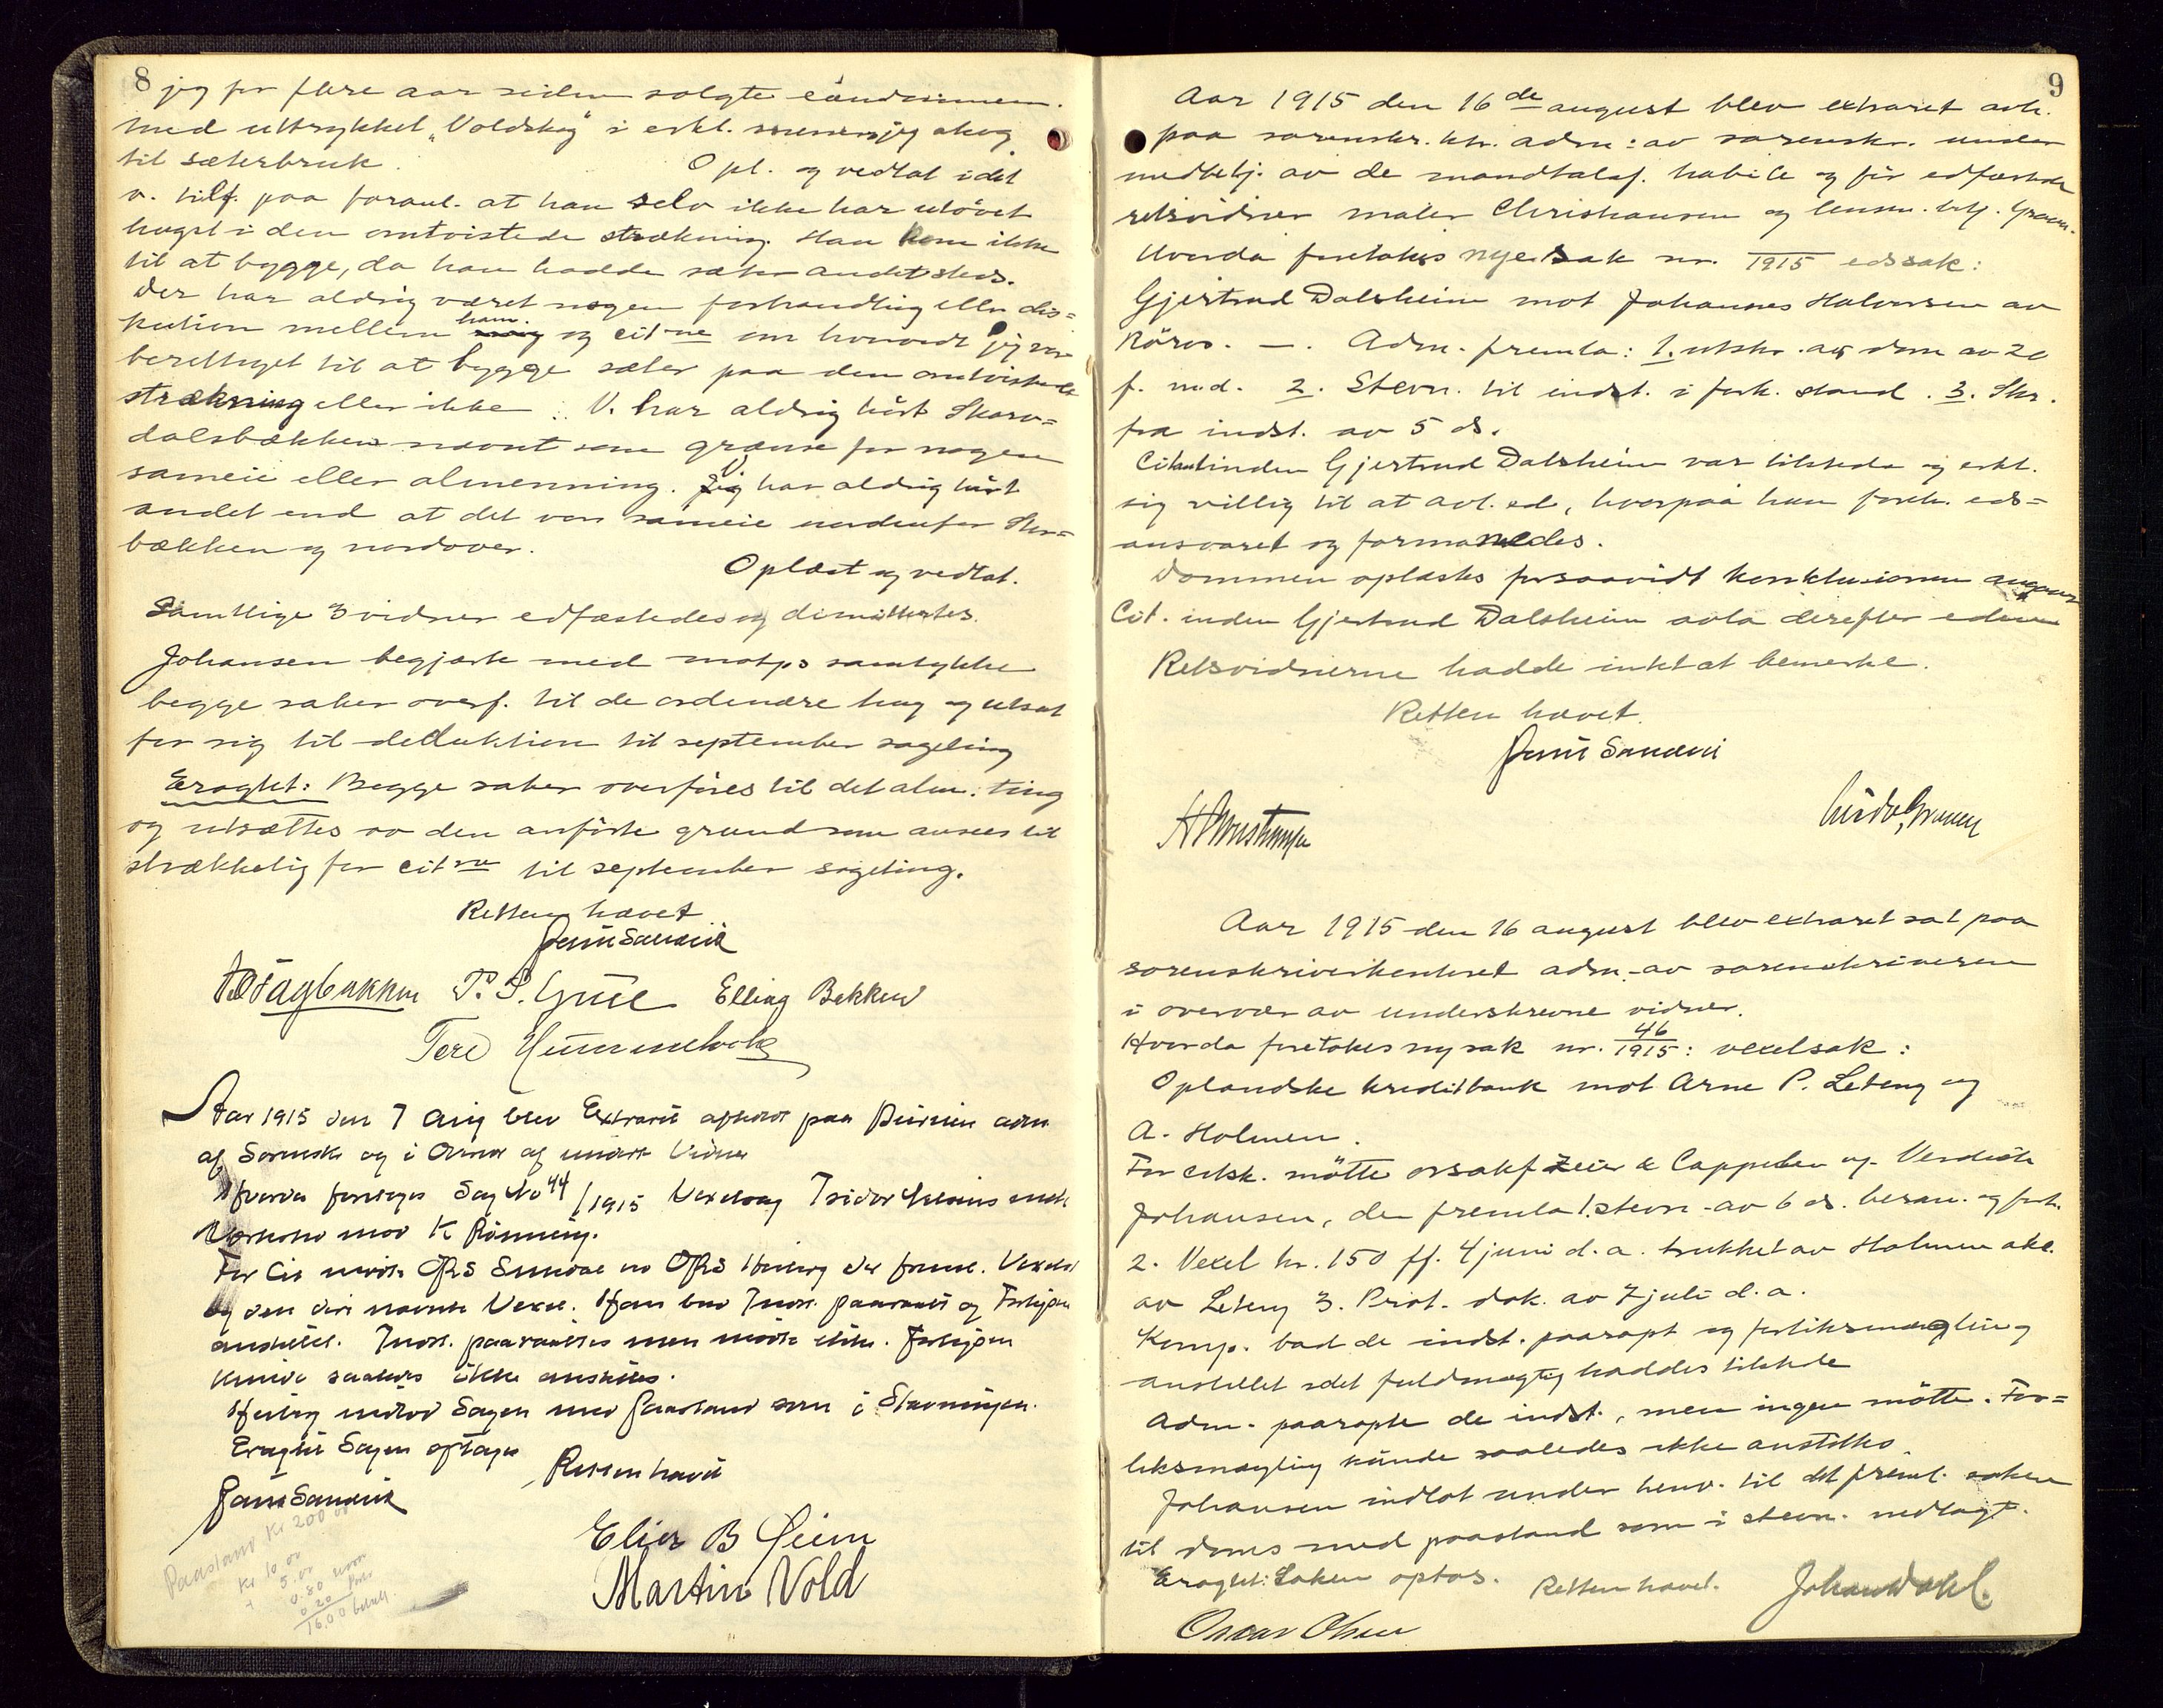 8 jeg for flere aar siden solgte eiendommen.
Med uttrykket "Voldskog" i erkl. mener jeg skog
til sæterbruk. Opl. og vedtat idet
v. tilf. paa foranl. at han selv ikke har utövet
hugst i den omtvistede strækning. Han kom ikke
til at bygge, da han hadde sæter andetsteds.
Der har aldrig været nogen forhandling eller dis=
kution mellem ham og citne om hvorvidt jeg var
berettiget til at bygge sæter paa den omtvistede
strækning eller ikke. V. har aldrig hört Skarv=
dalsbækken nævnt som grænse for nogen
sameie eller almenning. V. har aldrig hört
andet end at det var sameie nordenfor Skar=
bækken og nordover.
Oplæst og vedtat.
Samtlige 3 vidner edfæstedes og dimittertes.
Johansen begjærte med motps samtykke
begge saker overf. til de ordinære ting og utsat
for sig til deduktion til september sageting
Eragtet: Begge saker overföres til det alm. ting
og utsættes av den anförte grund som ansees til
strækkelig for citne til september sageting.
Retten hævet
Jens Sandvik
P. S. Gule Elling Bakken
Tere
Aar 1915 den 7 Aug blev Extraret afholdt paa Byen adm
af Sorensk og i Overvær af undert Vidner
Hvorda foretages Sag No 44/1915 Vexelsag Isidor
Værksted mod K Rönning.
For Cit mödte ORS Sundal no ORS Heiberg der freml. Vexel
og den deri nævnte Vexel. Han bad Indst. paaraabt og Forligsm
anstillet. Indst. paaraabtes men mödte ikke. Forligsm
kunde saaledes ikke anstilles.
Heiberg indlod Sagen med Paastand som i Stævningen.
Eragtet Sagen optages
Retten hævet
Jens Sandvik
Elier B Öien
Martin Vold
Paastand Kr 200 00
Kr 10 00
5.00
0.80
0 20
16.00 betalt.
9
Aar 1915 den 16de august blev extraret avh.
paa sorenskr. ktr. adm: av sorenskr. under
medbetj. av de mandtalsf. habile og för edfæstede
retsvidner maler Christiansen og lensm. betj. Gravem.
Hvorda foretokes nye sak nr. 1915 edssak:
Gjertrud Dalsheim mot Johannes Halvorsen av
Röros. —. Adm. fremla: 1. utskr. av dom av 20
f. md. 2. Stevn. til indst. i fork. stand. 3. Skr.
fra indst. av 5 ds.
Citantinden Gjertrud Dalsheim var tilstede og erkl.
sig villig til at avl. ed, hvorpaa hun foreh. eds=
ansvaret og formanedes.
Dommen oplæstes forsaavidt konklusionen angaar
Cit. inden Gjertrud Dalsheim avla derefter eden
Retsvidnerne hadde intet at bemerke.
Retten hævet.
Jens Sandvik
H Christiansen
Aar 1915 den 16 august blev extraret sat paa
sorenskriverkontoret adm. av sorenskriveren
i overvær av underskrevne vidner.
Hvorda foretokes ny sak nr. 46/1915: vexelsak:
Oplandske kreditbank mot Arne P. Leteng og
A. Holmen.
For citsk. mötte orsakf Zeier & Cappelen og Verdich
Johansen, der fremla 1. stevn. av 6 ds. beram. og fork.
2. Vexel kr. 150 ff. 4 juni d. a. trukket av Holmen akc.
av Leteng 3. Prot. dok. av 7 juli d. a.
Komp. bad de indst. paaropt og forliksmægling
anstillet idet fuldmægtig haddes tilstede
Adm. paaropte de indst., men ingen mötte. For=
liksmægling kunde saaledes ikke anstilles.
Johansen indlot under henv. til det freml. saken
til doms med paastand som i stevn. nedlagt.
Eragtet: Saken optas. Retten hævet. Johan Dahl.
Oscar Olsen